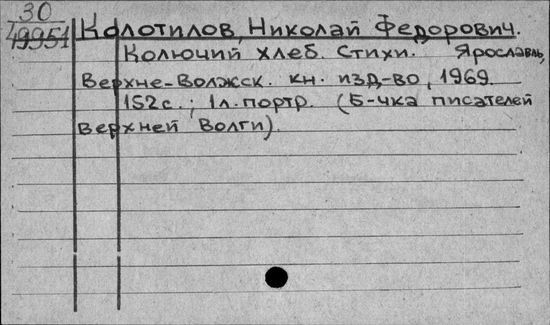 30
49951
Колотилов, Николай Федорович.
Колючий хлеб. Стихи. Ярославль,
Верхне-Волжск. кн. изд-во, 1969.
152 с.; 1л. портр. (Б-чка писателей
Верхней Волги).